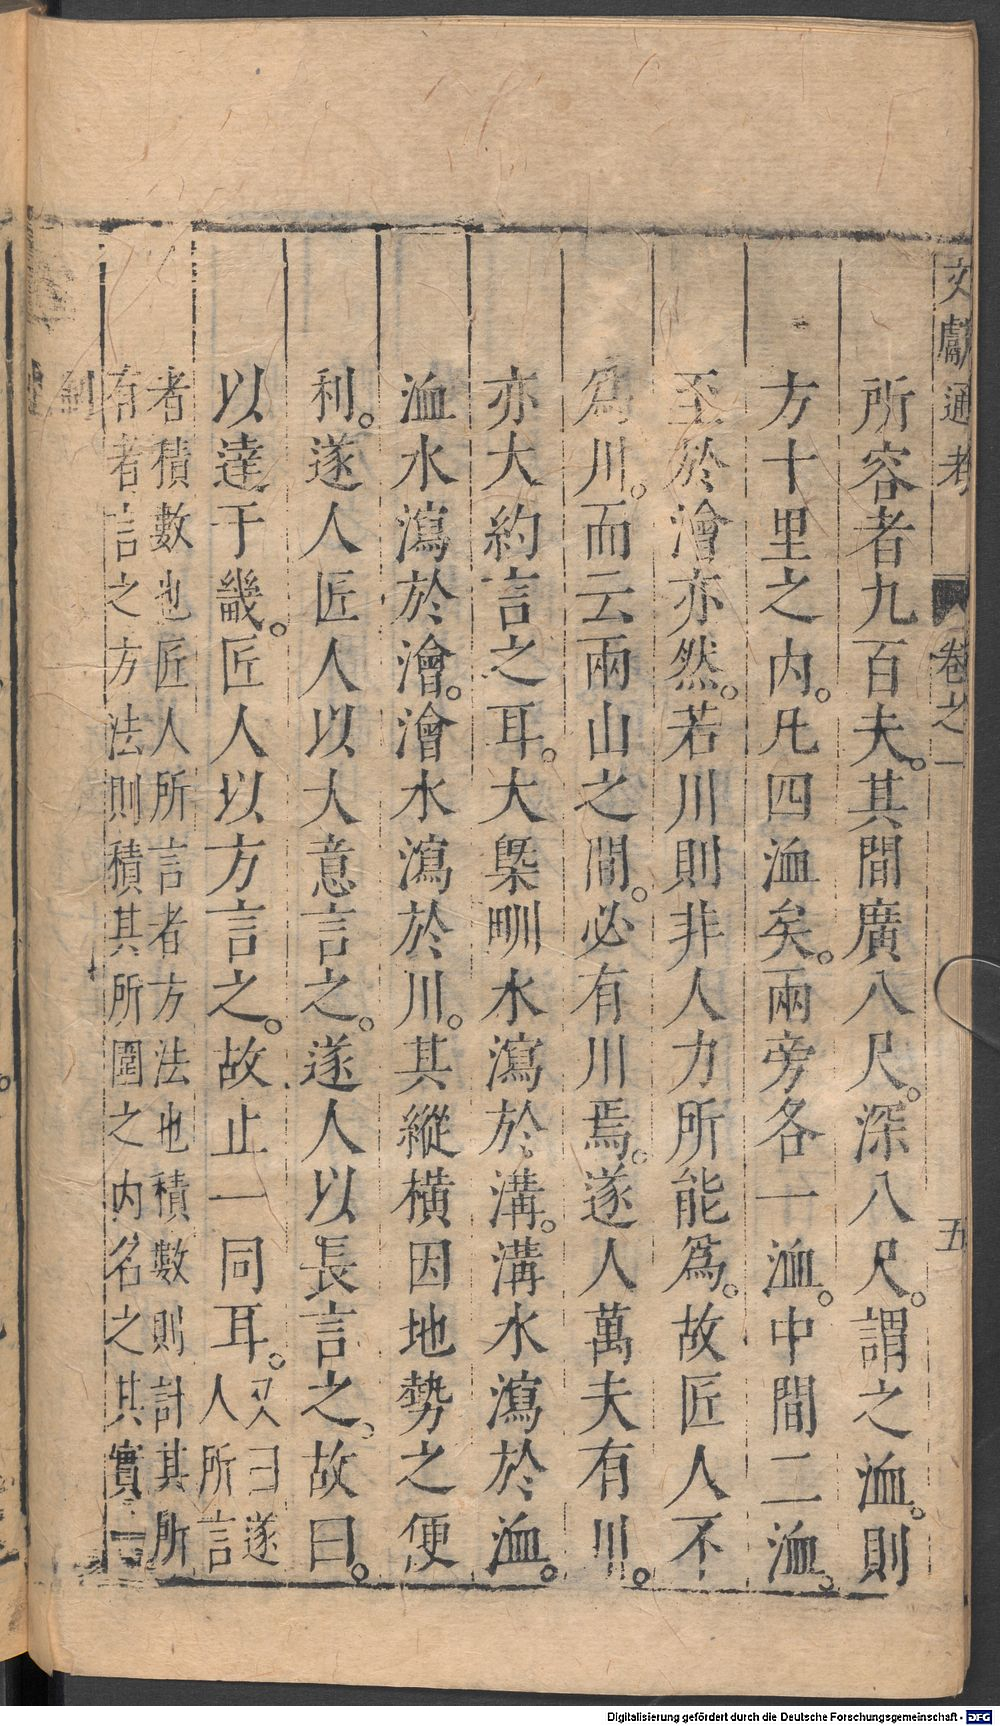 文獻通考 卷之一 五
所容者九百夫。其間廣八尺。深八尺。謂之洫。則
方十里之內。凡四洫矣。兩旁各一洫。中間二洫。
至於澮亦然。若川則非人力所能爲。故匠人不
爲川。而云兩山之間。必有川焉。遂人萬夫有川。
亦大約言之耳。大槩甽水瀉於溝。溝水瀉於洫。
洫水瀉於澮。澮水瀉於川。其縱橫因地勢之便
利。遂人匠人以大意言之。遂人以長言之。故曰。
以達于畿。匠人以方言之。故止一同耳。又曰遂
人所言
者積數也匠人所言者方法也積數則計其所
有者言之方法則積其所圍之內名之其實一
制
Digitalisierung gefördert durch die Deutsche Forschungsgemeinschaft - DFG